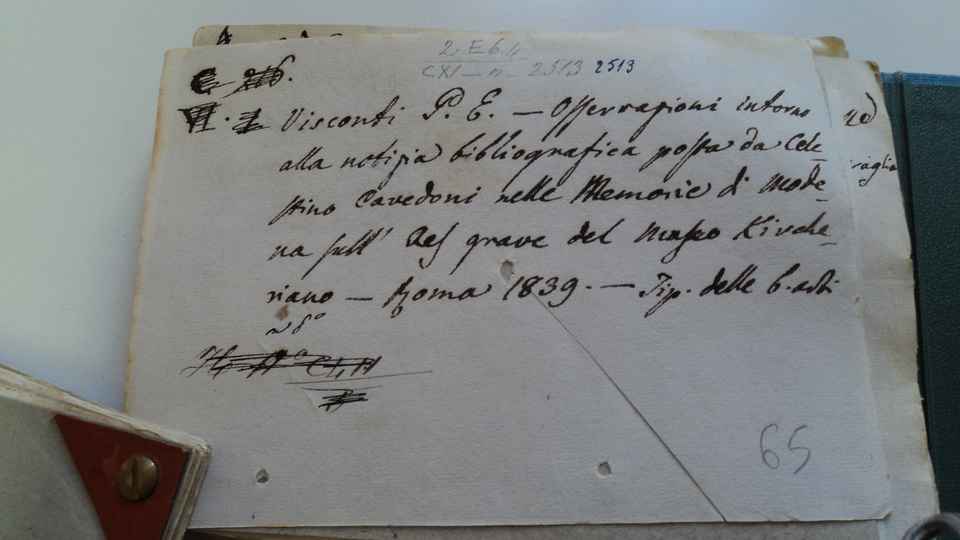 2. E 6.4
CXI - n - 2513 2513
Visconti P. E. — Osservazioni intorno
alla notizia bibliografica posta da Cele-
stino Cavedoni nelle Memorie di Mode-
na sull' Aes grave del Museo Kirche-
riano — Roma 1839. — Tip. delle b. arti
in 8°
65